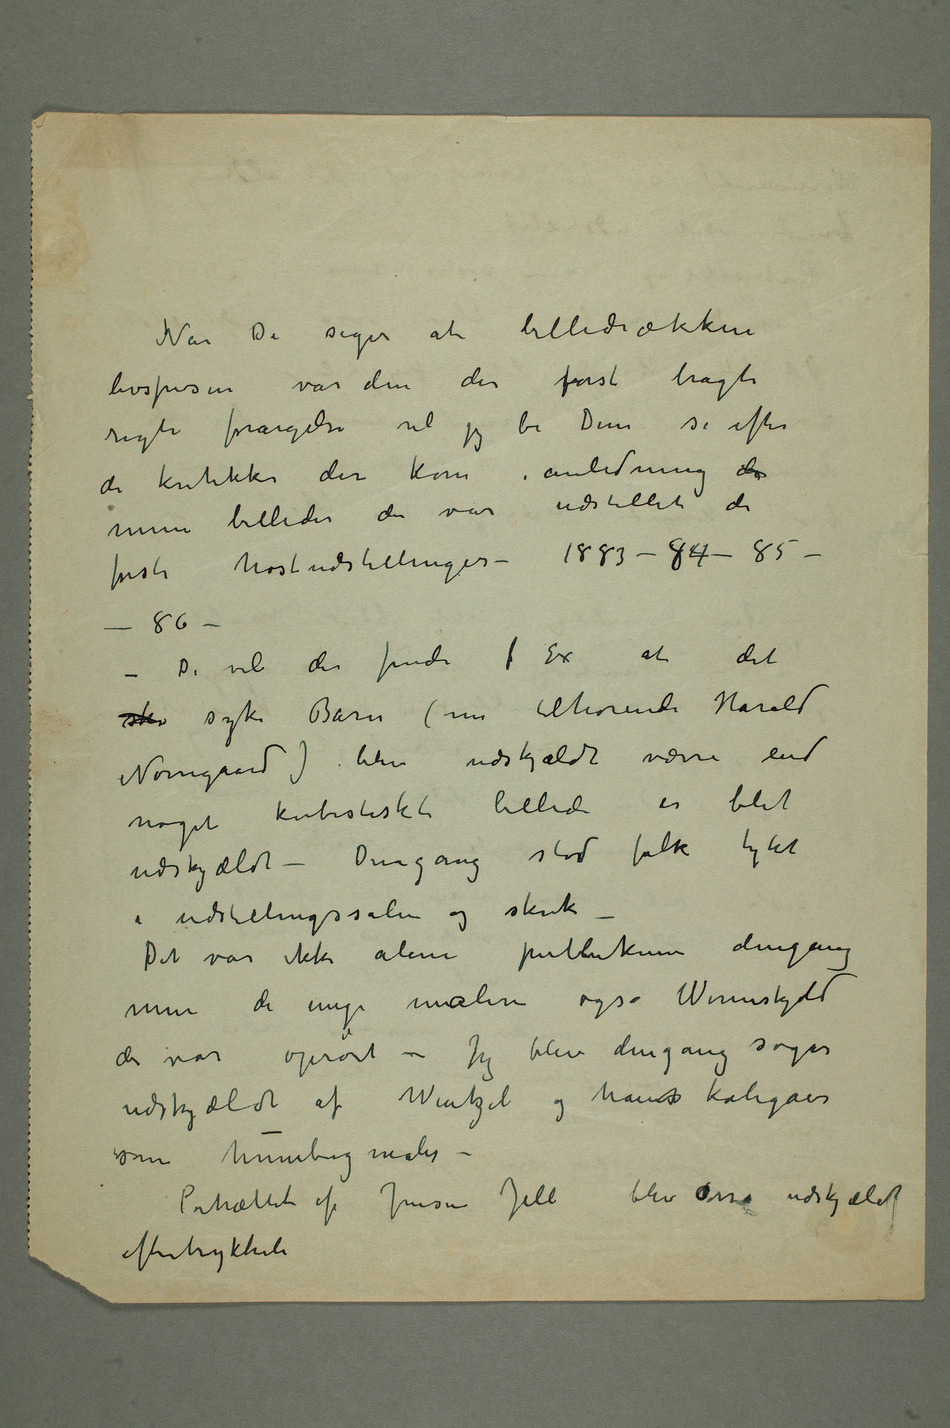 Når De siger at billedrækken
livsfrisen var den der først bragte
rigti forargelse vil jeg be Dem se efter
de kritikker der kom i anledning de
mine billeder der var udstillet de
første høstudstillinger – 1883 – 84 – 85 –
– 86 –
– De vil der finde f Ex at det
syke Barn (nu tilhørende Harald
Nørregaard) blev udskjældt værre end
noget kubistiskt billede er blet
udskjældt – Dengang stod folk tykt
i udstillingssalen og skrek –
Det var ikke alene publikum dengang
men de unge malere også Wærnskjold
der var oprørt – Jeg blev dengang sogar
udskjældt af Wentzel og hans kolegaer
som humbugmaler –
Portrættet af Jensen Hjell blev også udskjældt
eftertrykkeli